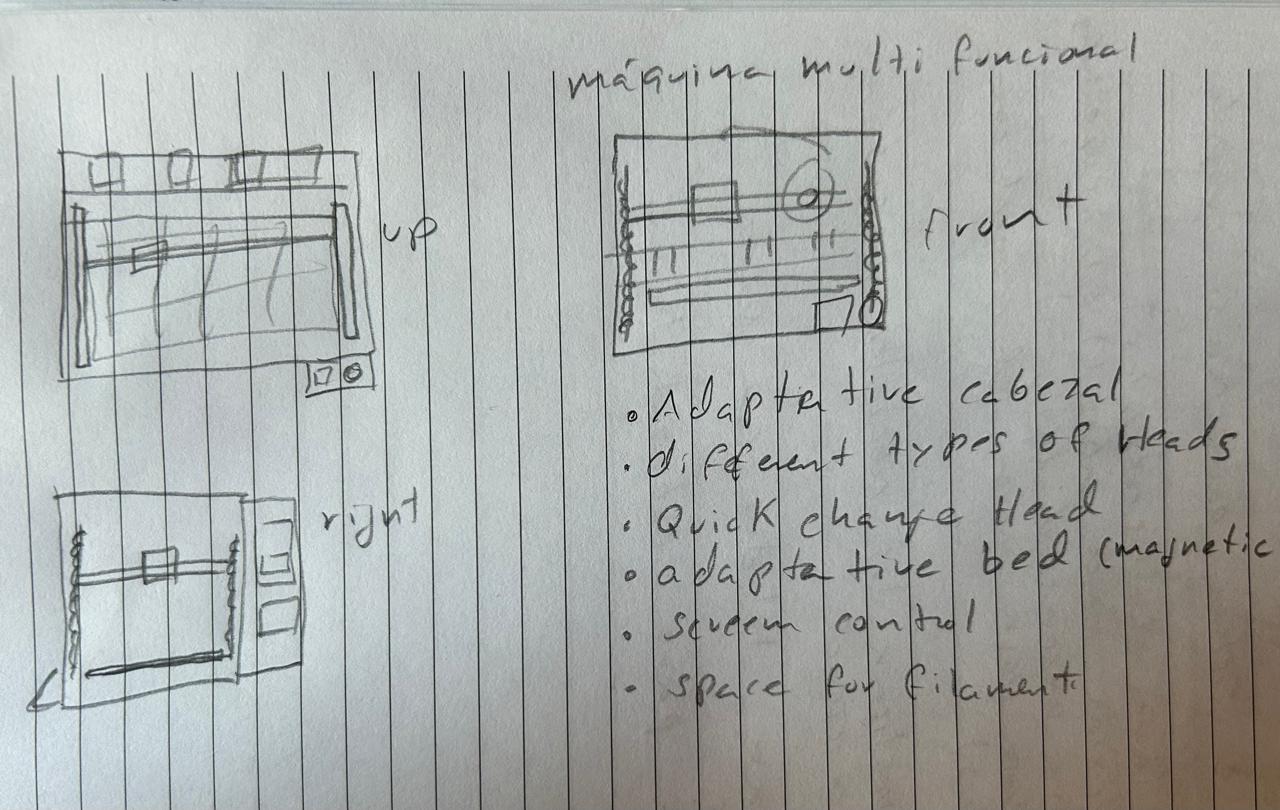 máquina multi funcional
up
front
right
• Adaptative cabezal
• different types of Heads
• Quick change Head
• adaptative bed (magnetic
• screem control
• space for filament